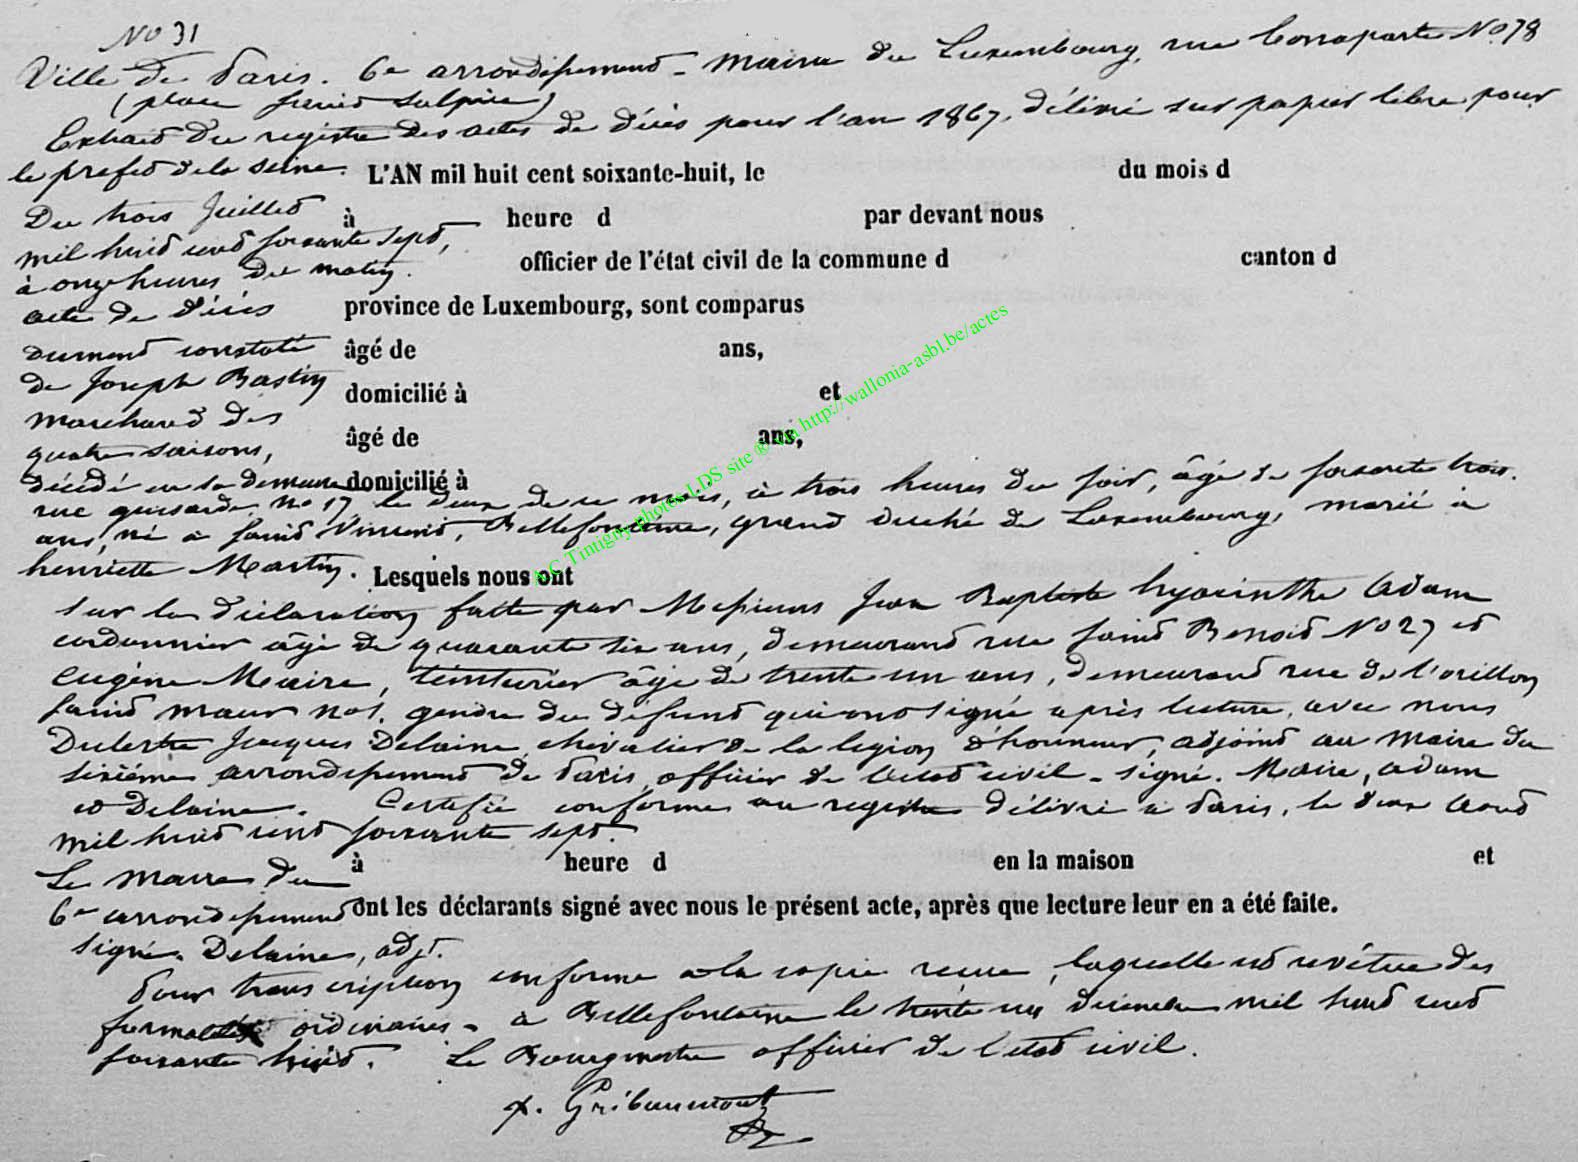 No 31
Ville de Paris. 6e arrondissement - Mairie du Luxembourg, rue Bonaparte No 78
(place saint Sulpice)
Extrait du registre des actes de décès pour l'an 1867, délivré sur papier libre pour
le prefet de la Seine. L'AN mil huit cent soixante-huit, le du mois d
Du trois Juillet à heure d par devant nous
mil huit cent soixante sept,
officier de l'état civil de la commune d canton d
à onze heures du matin.
acte de décès province de Luxembourg, sont comparus
dument constaté âgé de ans,
de Joseph Bastin domicilié à et
marchand des
quatre saisons, âgé de ans,
décédé en sa demeure domicilié à
rue guisarde, No 17, le deux de ce mois, à trois heures du soir, âgé de soixante trois
ans, né à saint Vincent, Bellefontaine, grand duché de Luxembourg, marié à
henriette Martin. Lesquels nous ont
sur la déclaration faite par Messieurs Jean Baptiste hyacinthe Adam
cordonnier âgé de quarante six ans, demeurant rue saint Benoit No 27 et
Eugène Maire, teinturier âgé de trente un ans, demeurant rue de l'orillon
saint maur no 1. gendre du défunt qui ont signé après lecture, avec nous
Jacques Delaine, chevalier de la legion d'honneur, adjoint au maire du
sixième arrondissement de Paris, officier de l'etat civil - signé. Maire, adam
et Delaine. Certifié conforme au registre délivré à Paris, le deux Aout
mil huit cent soixante sept.
à heure d en la maison et
Le Maire du
6e arrondissement ont les déclarants signé avec nous le présent acte, après que lecture leur en a été faite.
signé. Delaine, adjt.
Pour transcription conforme à la copie reçue, laquelle est revêtue des
formalités ordinaires - à Bellefontaine le trente un décembre mil huit cent
soixante huit. Le Bourgmestre officier de l'etat civil.
x. Gribaumont
A.C Tintigny photos LDS site ® via http://wallonia-asbl.be/actes